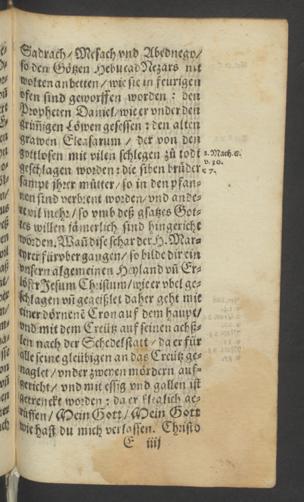 Sadrach/ Mesach vnd Abednego/
so den Götzen Nebucad Nezars nit
wolten anbetten/ wie sie in feurigen
ofen sind geworffen worden: den
Propheten Daniel/ wie er vnder den
grim̃igen Löwen gesessen: den alten
grawen Eleasarum/ der von den
gottlosen mit vilen schlegen zů todt
geschlagen worden: die siben brüder
sampt jhrer můtter/ so in den pfan-
nen sind verbrent worden/ vnd ande-
re vil mehr/ so vmb deß gsatzes Got-
tes willen jämerlich sind hingericht
worden. Wañ dise schar der H. Mar-
tyrer fürvbergangen/ so bilde dir ein
vnsern algemeinen Heyland vñ Er-
löser Jesum Christum/ wie er vbel ge-
schlagen vñ gegeißlet daher geht mit
einer dörnenẽ Cron auf dem haupt/
vnd mit dem Creütz auf seinen achß-
len nach der Schedelstatt/ da er für
alle seine gleübigen an das Creütz ge-
naglet/ vnder zweyen mördern auf-
gericht/ vnd mit essig vnd gallen ist
getrenckt worden: da er kläglich ge-
rüffen/ Mein Gott/ Mein Gott
wie hast du mich verlassen. Christo
E iiij
2. Mach. 6.
v. 30.
c 7.